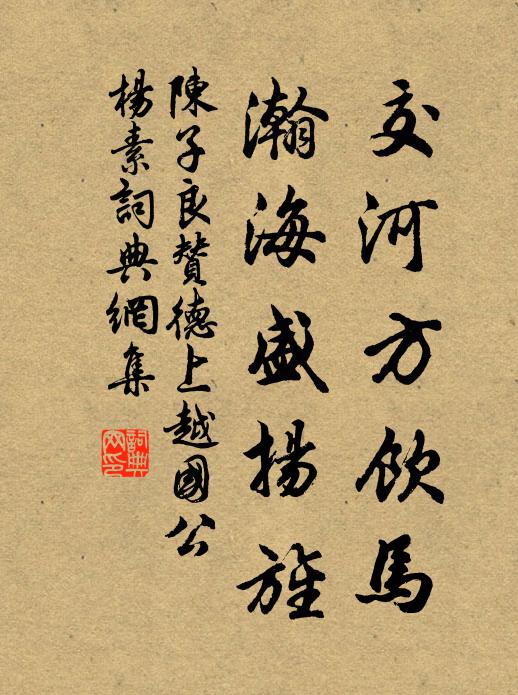 交河方飲馬
瀚海盛揚旌
陳子良贊德上越國公
楊素詞典網集
詞典
网印